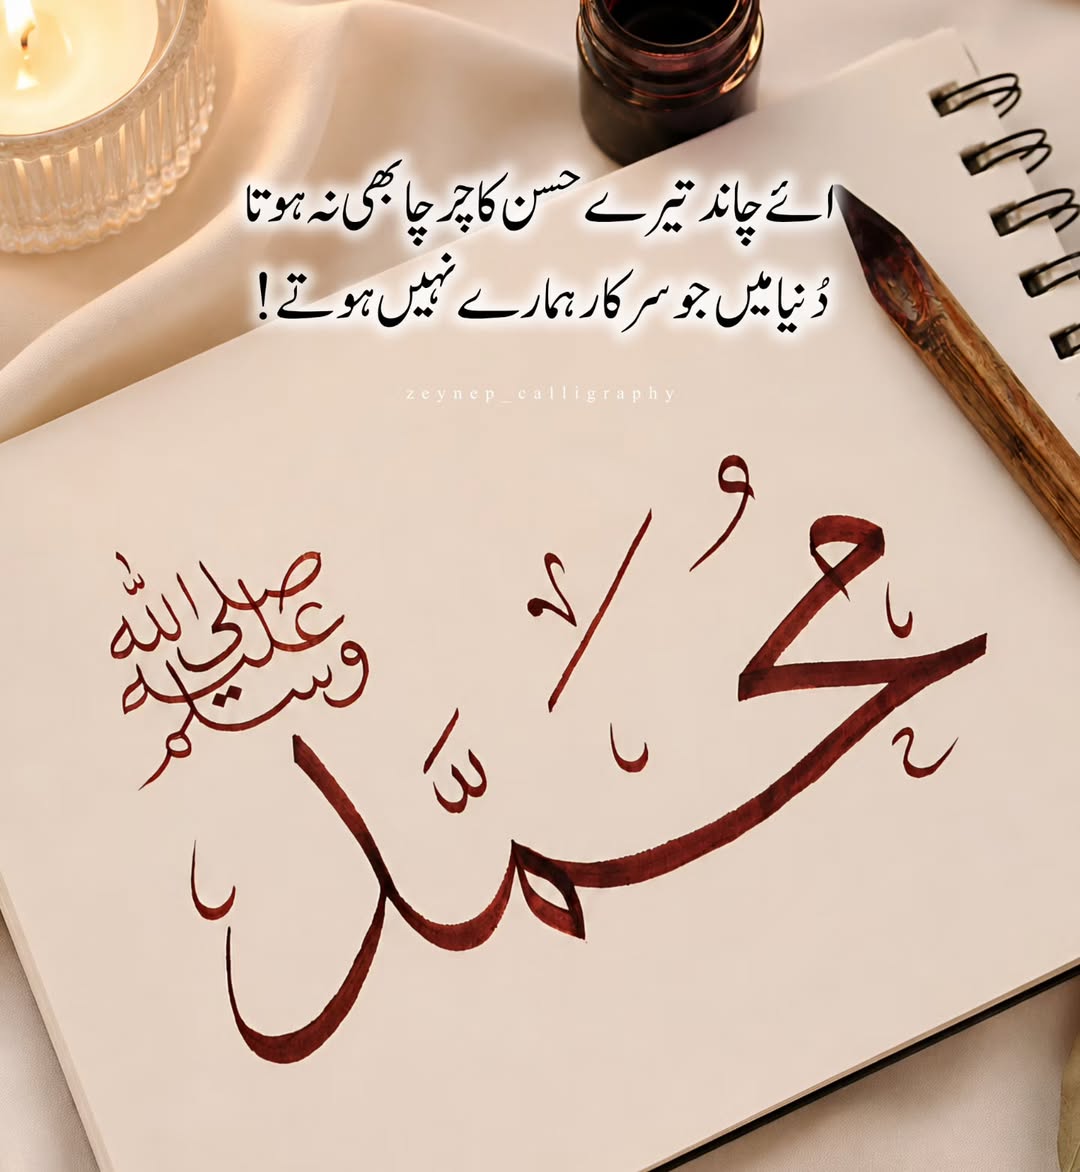 ائے چاند تیرے حسن کا چرچا بھی نہ ہوتا
دُنیا میں جو سرکار ہمارے نہیں ہوتے!
zeynep_calligraphy
محمد
صلى الله عليه وسلم